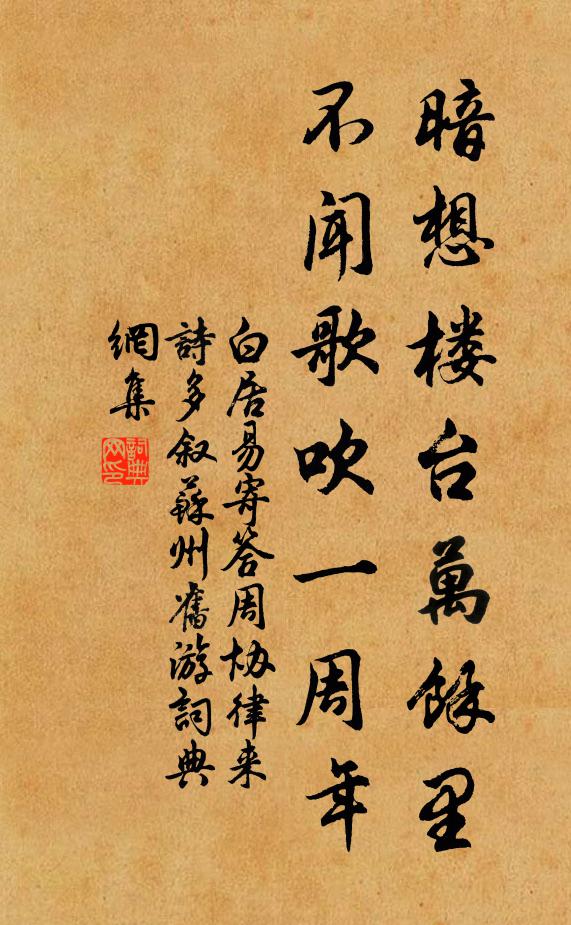 暗想楼台萬餘里
不闻歌吹一周年
白居易寄答周协律来
詩多叙蘇州舊游詞典
網集
詞典
网印